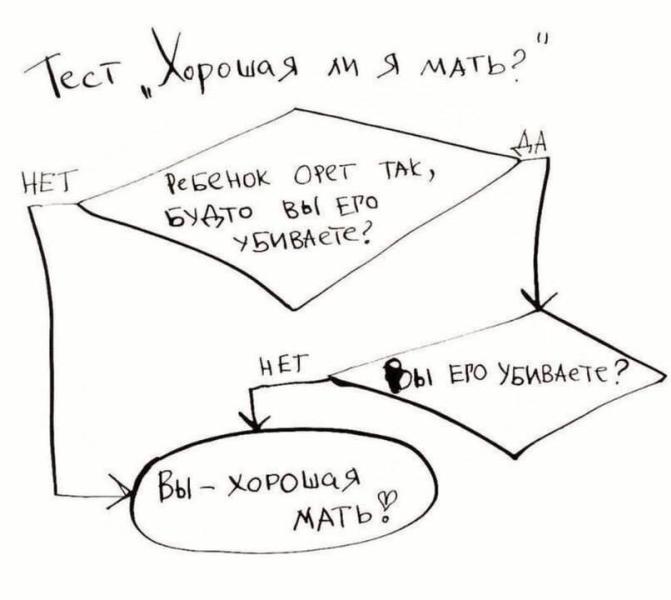 Тест „Хорошая ли я мать?"
НЕТ
ДА
Ребенок орет так,
будто вы его
убиваете?
НЕТ
Вы его убиваете?
Вы – хорошая
мать!